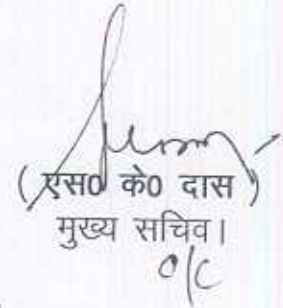 ( एस0 के0 दास )
मुख्य सचिव।
o/c